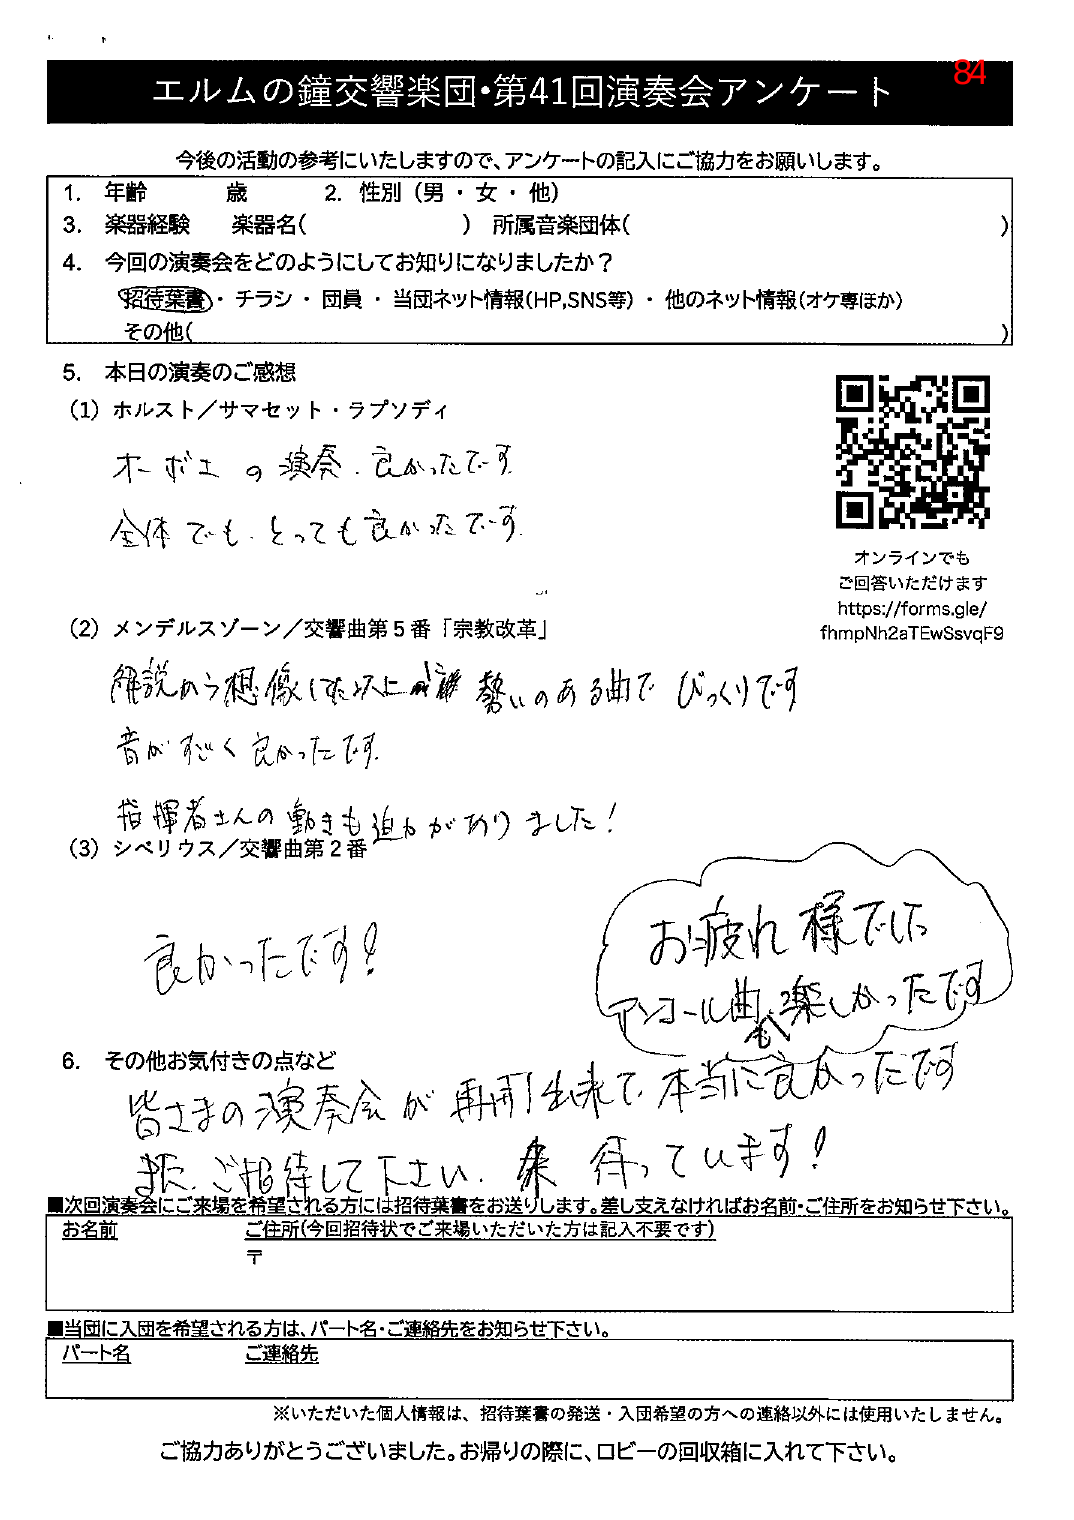 84
エルムの鐘交響楽団・第41回演奏会アンケート
今後の活動の参考にいたしますので、アンケートの記入にご協力をお願いします。
1. 年齢 歳 2. 性別（男 ・ 女 ・ 他）
3. 楽器経験 楽器名( ) 所属音楽団体( )
4. 今回の演奏会をどのようにしてお知りになりましたか？
招待葉書 ・ チラシ ・ 団員 ・ 当団ネット情報(HP,SNS等) ・ 他のネット情報(オケ専ほか)
その他( )
5. 本日の演奏のご感想
（1）ホルスト／サマセット・ラプソディ
オーボエの演奏、良かったです
全体でも、とっても良かったです。
オンラインでも
ご回答いただけます
https://forms.gle/
fhmpNh2aTEwSsvqF9
（2）メンデルスゾーン／交響曲第５番「宗教改革」
解説から想像した以上に 勢いのある曲で びっくりです
音がすごく良かったです。
指揮者さんの動きも迫力がありました！
（3）シベリウス／交響曲第２番
良かったです！
お疲れ様でした
アンコール曲も楽しかったです
6. その他お気付きの点など
皆さまの演奏会が再開出来て、本当に良かったです
また、ご招待して下さい、待っています！
■次回演奏会にご来場を希望される方には招待葉書をお送りします。差し支えなければお名前・ご住所をお知らせ下さい。
お名前 ご住所(今回招待状でご来場いただいた方は記入不要です)
〒
■当団に入団を希望される方は、パート名・ご連絡先をお知らせ下さい。
パート名 ご連絡先
※いただいた個人情報は、招待葉書の発送・入団希望の方への連絡以外には使用いたしません。
ご協力ありがとうございました。お帰りの際に、ロビーの回収箱に入れて下さい。